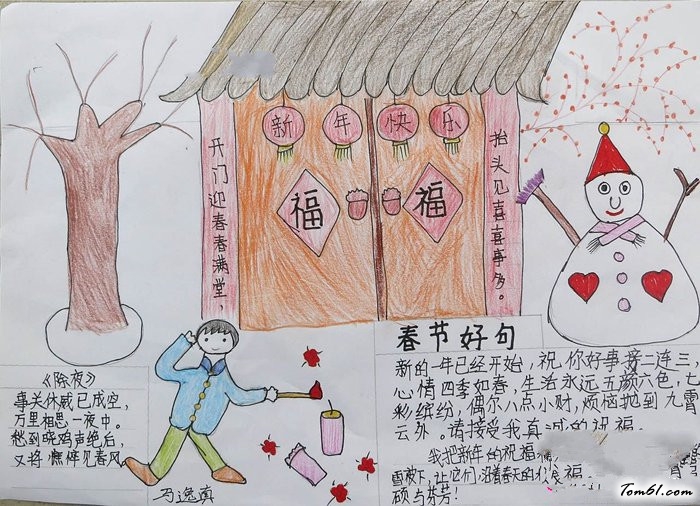 新年快乐
开门迎春春满堂，
福
福
抬头见喜喜事多。
《除夜》
事关休戚已成空，
万里相思一夜中。
愁到晓鸡声绝后，
又将憔悴见春风。
马逸真
春节好句
新的一年已经开始，祝你好事接二连三，
心情四季如春，生活永远五颜六色，七
彩缤纷，偶尔八点小财，烦恼抛到九霄
云外。请接受我真诚的祝福
我把新年的祝福
雪被下，让它们沿着春天的 福
硕与芬芳！
Tom61.com